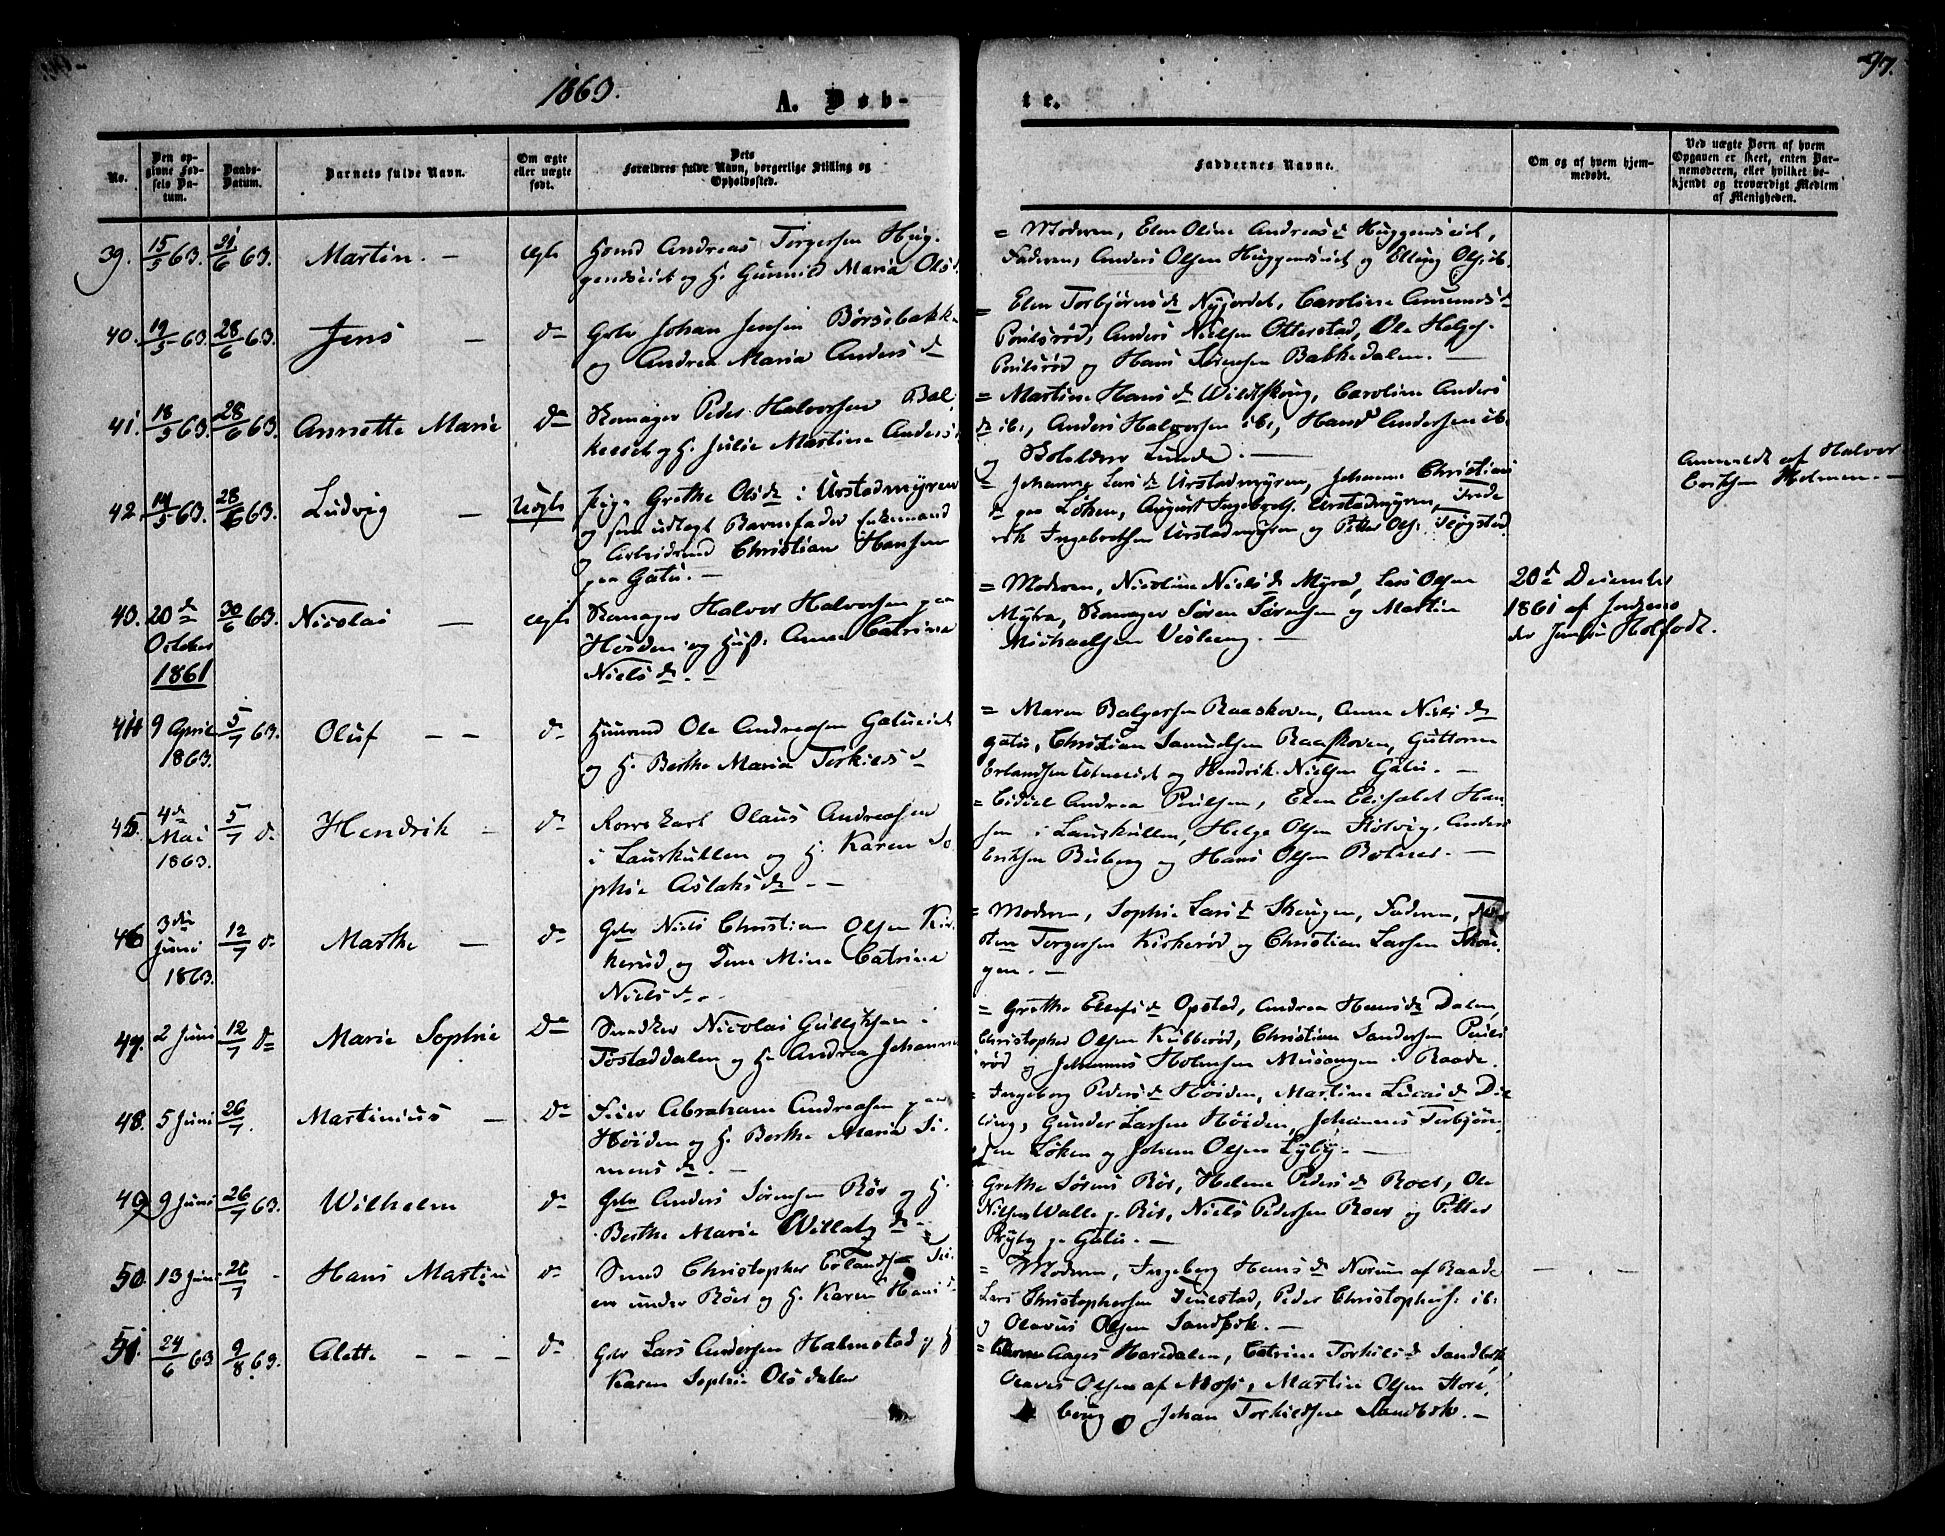 1863.
A. Døb-
te.
97.
No.
Den op-
givne Fød-
sels Da-
tum.
Daabs-
Datum.
Barnets fulde Navn.
Om ægte
eller uægte
født.
Dets
Forældres fulde Navn, borgerlige Stilling og
Opholdssted.
Faddernes Navne.
Om og af hvem hjem-
medøbt.
Ved uægte Børn af hvem
Opgaven er skeet, enten Bar-
nemoderen, eller hvilket be-
kjendt og troværdigt Medlem
af Menigheden.
39. 15/5 63. 21/6 63. Martin. — ægte
Andreas Torgersen Hug-
gendseiet og H. Gunnild Maria Olsd.
= Moderen, Elen Oline Andreasd Huggendseiet,
Faderen, Anders Olsen Huggendseiet og Elling Ols. ib.
40. 19/5 63. 28/6 63. Jens — do
Gbr Johan Jensen Børsebakke
og Andrea Maria Andersd
= Elen Torbjørnsd Nyjordet, Caroline Amundsd
Poulsrød, Anders Nielsen Otterstad, Ole Helges.
Poulsrød og Hans Sørensen Bakkedalen. —
41. 18/5 63. 28/6 63. Annette Marie do
Peder Halvorsen Bak-
keeset og H. Julie Martine Anders
= Martine Hansd Wildtskoug, Caroline Anders
d ib., Anders Halvorsen ib., Hans Andersen ib.
og Lunde. —
42. 14/5 63. 28/6 63. Ludvig — uægte
Pige Grethe Olsd i Urstadmyren
og som udlagt Barnefader Enkemand
og Arbeidsmd Christian Hansen
paa Gatu. —
= Johanne Larsd Urstadmyren, Johanne Christians
d paa Løken, August Ingebrets. Urstadmyren, Frede
rik Ingebretsen Urstadmyren og Petter Ols. Fløgstad.
Anmeldt af Halvor
Eriksen Holmen. —
43. 20de October 1861 30/6 63. Nicolai — ægte
Halvor Halvorsen paa
Høiden og Hust: Anne Catrine
Nielsd. —
= Moderen, Nicoline Nielsd Myra, Lars Olsen
Myra, Søren Sørensen og Martin
Michaelsen Visleng. —
20de December
1861 af Jordemo
der Jensen Holfodt.
44 9 April 1863. 5/7 63. Oluf — — do
Huusmd Ole Andreasen Gatueiet
og H. Berthe Maria Torkildsd
= Maren Balgersen Raaskoven, Anne Nielsd
Gatu, Christian Samuelsen Raaskoven, Guttorm
Erlandsen og Hendrik Nielsen Gatu. —
45. 4de Mai 1863. 5/7 do Hendrik — do
Olaus Andreasen
i Lauskullen og H. Karen So
phie Aslaksd. —
= Andrea Poulsen, Elen Elisabet Han-
sen i Lauskullen, Helge Olsen Holvig, Anders
Eriksen Buberg og Hans Olsen Botner. —
46 3die Juni 1863. 12/7 do Marthe — do
Gbr Niels Christian Olsen Kir
kerud og Mine Catrine
Nielsd.
= Moderen, Sophie Larsd Skaugen, Faderen, Tor
sten Torgersen Kirkerød og Christian Larsen Skau-
gen. —
47. 2 Juni 12/7 do Marie Sophie do
Snedker Nicolai Gulliksen i
Tostaddalen og H. Andrea Johanne
= Grethe Ellefsd Opstad, Andrea Hansd Dalen,
Christopher Olsen Kubberød, Christian Sandersen Pouls
rød og Johannes Holmsen Musangen i Raade.
48. 5 Juni 26/7. Martinius — do
Feier Abraham Andreasen paa
Høiden og H. Berthe Maria Si
mensd. —
= Ingeborg Pedersd Høiden, Martine Lucasd Dil
ling, Gunder Larsen Høiden, Johannes Torbjørn
sen Løken og Johan Olsen Lyby. —
49 9 Juni 26/7 63. Wilhelm do
Gbr Anders Sørensen Rør og H.
Berthe Marie Willatzd. —
Grethe Sørens Rør, Helene Pedersd Roer, Ole
Nilsen Walle p. Rør, Niels Pedersen Roer og Petter
Ryby p. Gatu. —
50. 13 Juni 26/7 - Hans Martin do
Smed Christopher Erlandsen
en under Røer og H. Karen Hansd
= Moderen, Ingeborg Hansd Norum af Raade
Lars Christophersen Tuestad, Peder Christophers: ib:
og Olavus Olsen Sandbæk. —
51. 24/6 63 9/8 63. Alette — — — do
Gbr Lars Andersen Halmstad og H
Karen Sophie Olsdatter
= Aages Haredalen, Catrine Torkildsd Sandbæk
Olaves Olsen af Moss, Martin Olsen Kore
berg og Johan Torkildsen Sandbæk. —